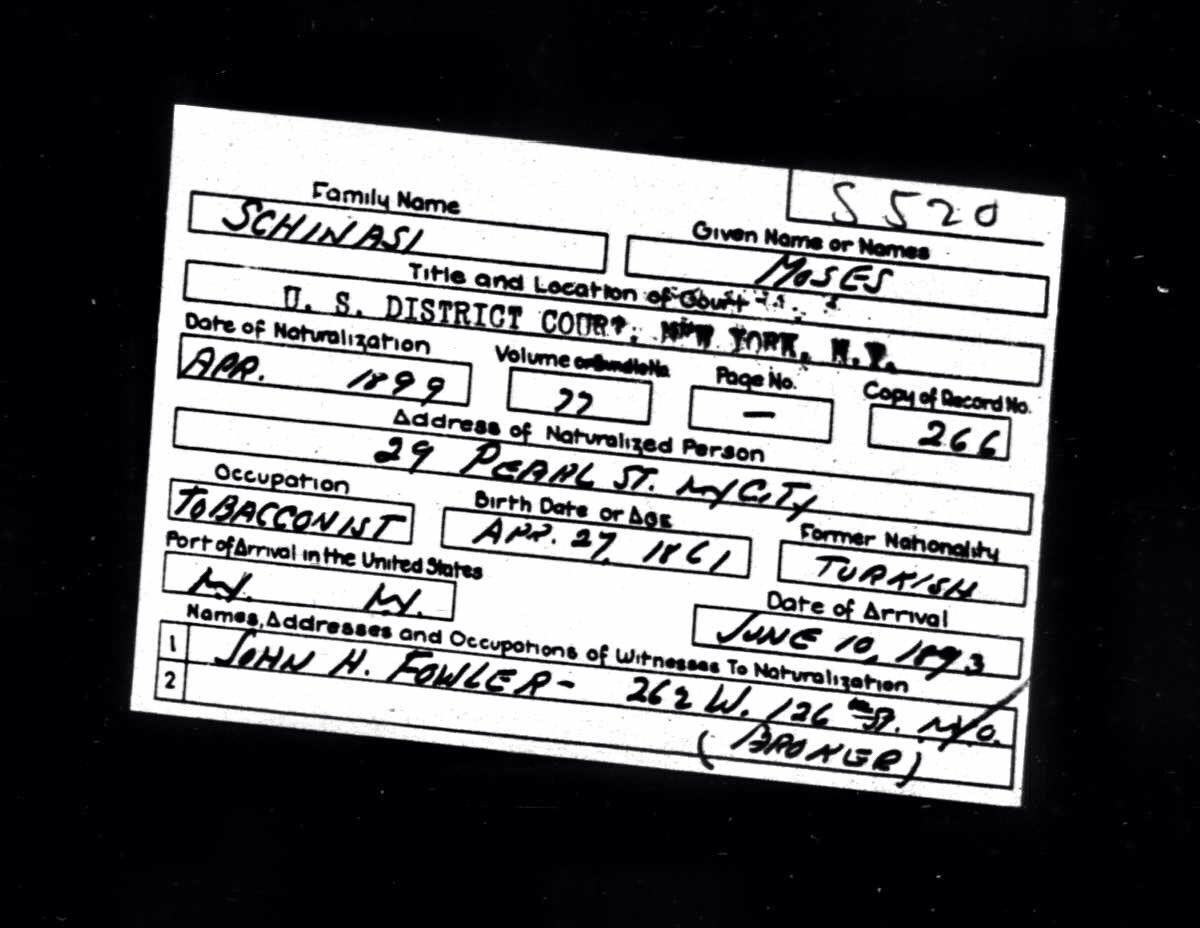 S 520
Family Name Given Name or Names
SCHINASI MOSES
Title and Location of Court
U. S. DISTRICT COURT, NEW YORK, N.Y.
Date of Naturalization Volume or Bundle No. Page No. Copy of Record No.
APR. 1899 77 — 266
Address of Naturalized Person
29 PEARL ST. NY CITY
Occupation Birth Date or AGE Former Nationality
TOBACCONIST APR. 27, 1861 TURKISH
Port of Arrival in the United States Date of Arrival
N.Y. N.Y. JUNE 10, 1893
Names, Addresses and Occupations of Witnesses To Naturalization
1 JOHN H. FOWLER - 262 W. 126 th ST. NYC.
2 (BROKER)